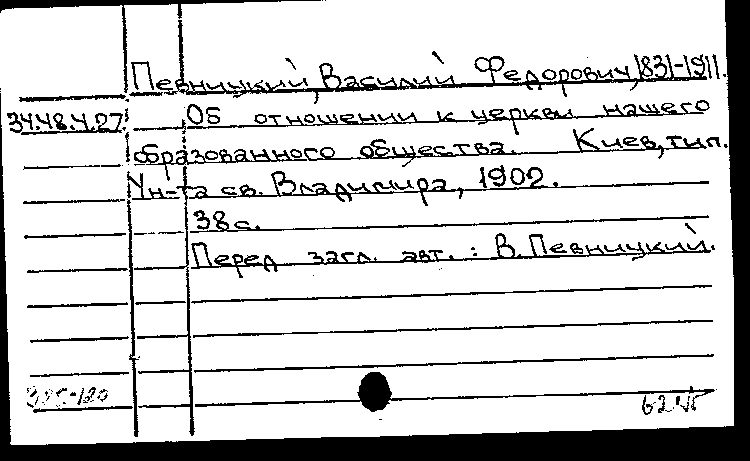 Певницкий, Василий Федорович, 1831-1911.
34.48.4.27. Об отношении к церкви нашего
образованного общества. Киев, тип.
Ун-та св. Владимира, 1902.
38 с.
Перед загл. авт.: В. Певницкий.